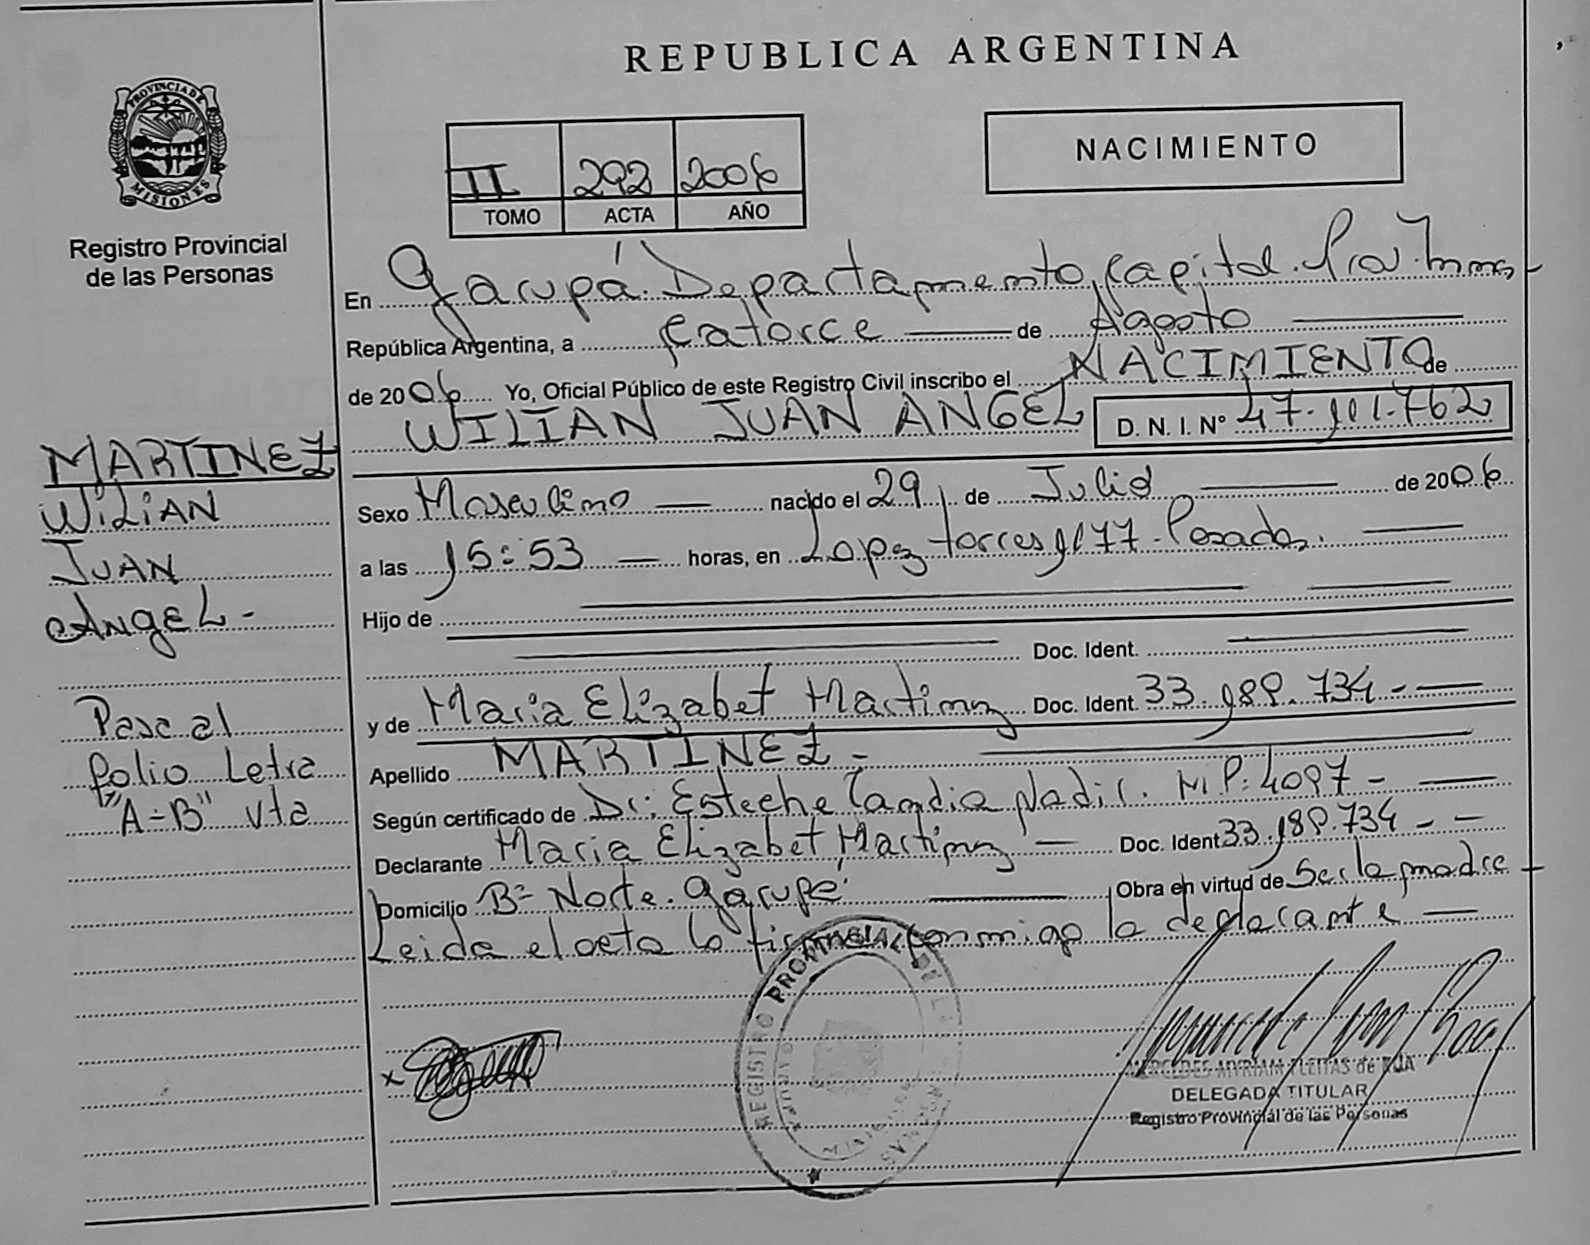 REPUBLICA ARGENTINA
PROVINCIA DE
MISIONES
Registro Provincial
de las Personas
II 292 2006
TOMO ACTA AÑO
NACIMIENTO
En Garupá. Departamento Capital. Prov. Mnes
República Argentina, a Catorce de Agosto
de 2006 Yo, Oficial Público de este Registro Civil inscribo el NACIMIENTO de
WILIAN JUAN ANGEL D. N. I. Nº 47.101.762
MARTINEZ
WiLiAN
JUAN
ANgEL-
Sexo Masculino nacido el 29 de Julio de 2006
a las 15:53 horas, en Lopez torres 1177. Posadas.
Hijo de
Doc. Ident.
y de Maria Elizabet Martinez Doc. Ident. 33.189.734.-
Apellido MARTINEZ-
Pasc al
folio Letra
"A-B" vta
Según certificado de Dr: Esteche Candia Nadir. M P: 4097-
Declarante Maria Elizabet Martinez Doc. Ident 33.189.734 - -
Domicilio Bº Norte. Garupá. Obra en virtud de Ser la madre
Leida el acta la firma conmigo la declarante
x
REGISTRO PROVINCIAL DE LAS
MERCEDES MYRIAM FLEITAS de ROA
DELEGADA TITULAR
Registro Provincial de las Personas